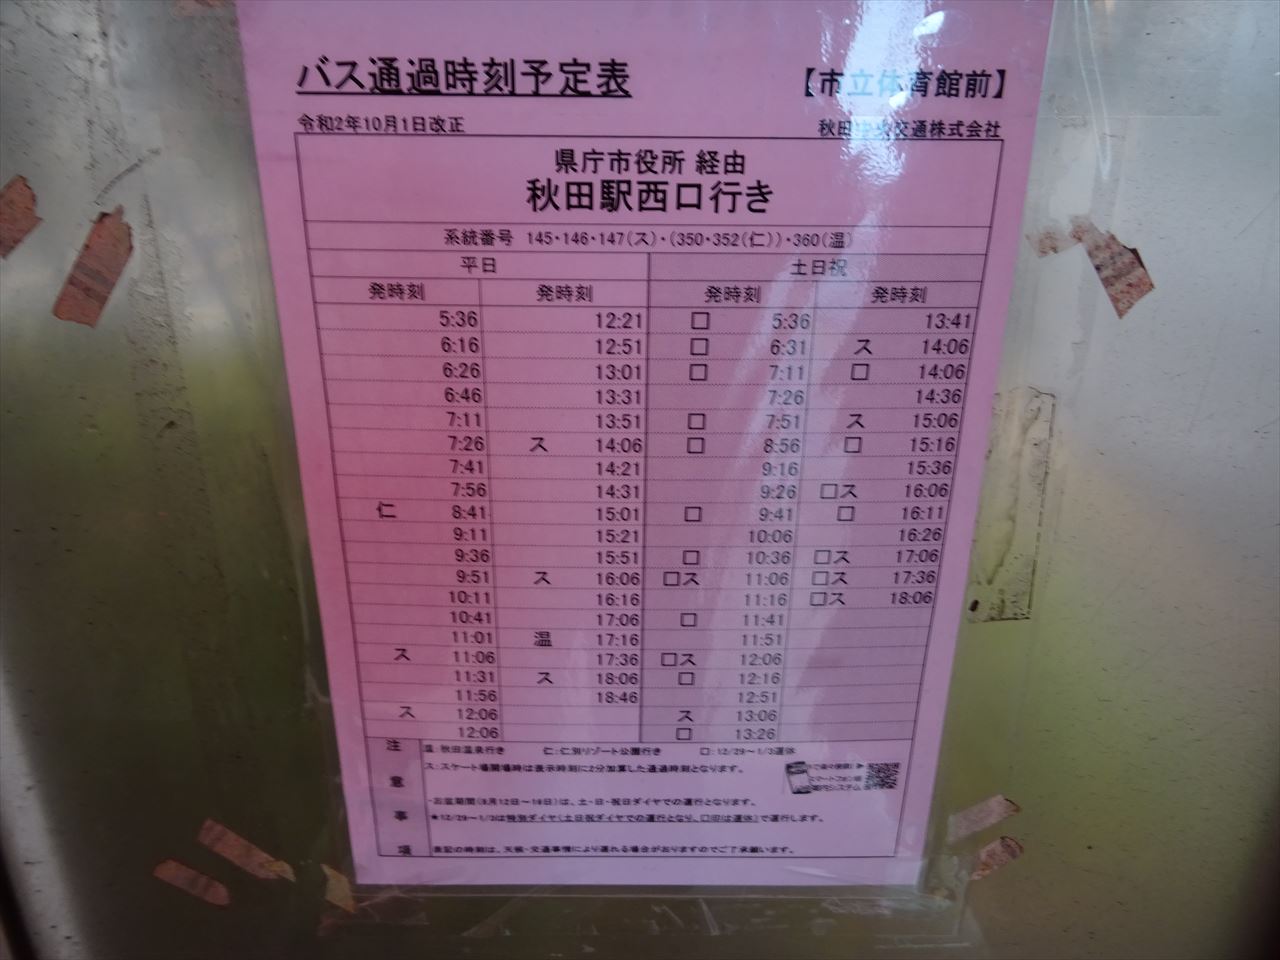 バス通過時刻予定表 【市立体育館前】
令和2年10月1日改正 秋田中央交通株式会社
県庁市役所 経由
秋田駅西口行き
系統番号 145・146・147(ス)・(350・352(仁))・360(温)
平日 土日祝
発時刻 発時刻 発時刻 発時刻
5:36 12:21 □ 5:36 13:41
6:16 12:51 □ 6:31 ス 14:06
6:26 13:01 □ 7:11 □ 14:06
6:46 13:31 7:26 14:36
7:11 13:51 □ 7:51 ス 15:06
7:26 ス 14:06 □ 8:56 □ 15:16
7:41 14:21 9:16 15:36
7:56 14:31 9:26 □ス 16:06
仁 8:41 15:01 □ 9:41 □ 16:11
9:11 15:21 10:06 16:26
9:36 15:51 □ 10:36 □ス 17:06
9:51 ス 16:06 □ス 11:06 □ス 17:36
10:11 16:16 11:16 □ス 18:06
10:41 17:06 □ 11:41
11:01 温 17:16 11:51
ス 11:06 17:36 □ス 12:06
11:31 ス 18:06 □ 12:16
11:56 18:46 12:51
ス 12:06 ス 13:06
12:06 □ 13:26
注意事項
温:秋田温泉行き 仁:仁別リゾート公園行き □:12/29~1/3運休
ス:スケート場開場時は表示時刻に2分加算した通過時刻となります。
スマートフォン版
案内システム
・お盆期間(8月12日~16日)は、土・日・祝日ダイヤでの運行となります。
★12/29~1/3は特別ダイヤ(土日祝ダイヤでの運行となり、□印は運休)で運行します。
表記の時刻は、天候・交通事情により遅れる場合がおりますのでご了承願います。